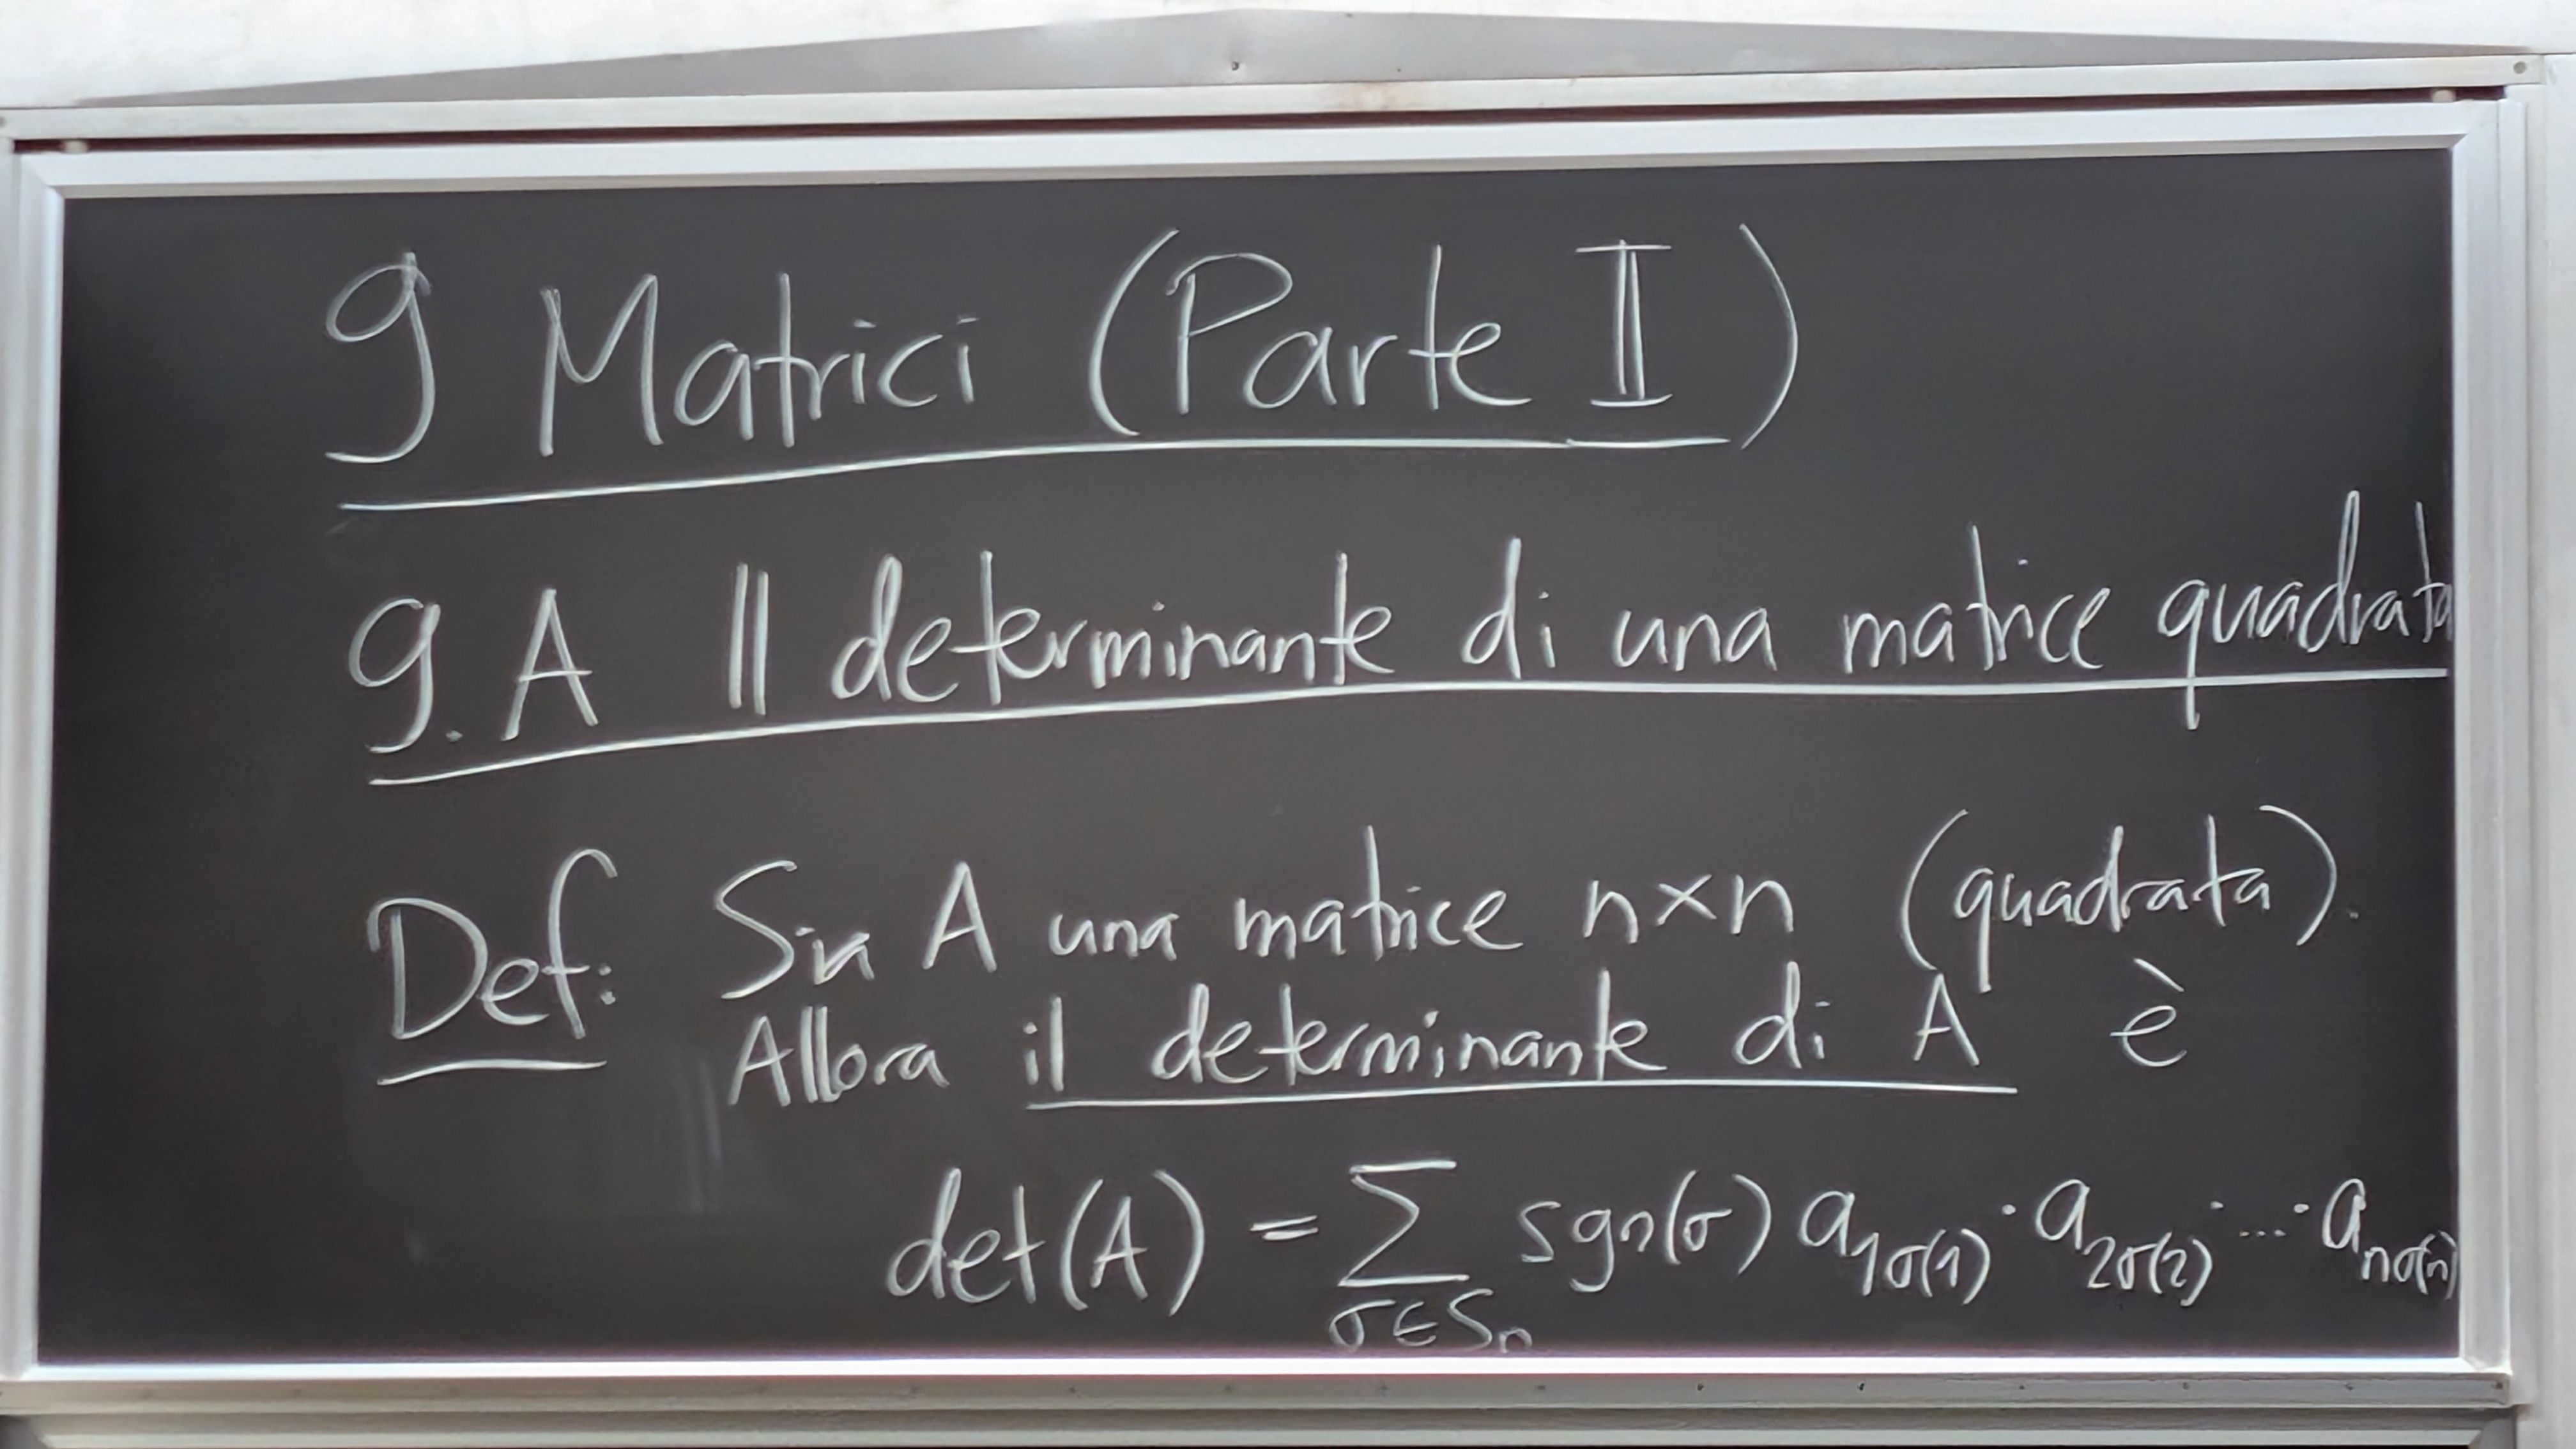 9 Matrici (Parte II)
9.A Il determinante di una matrice quadrata
Def: Sia A una matrice n×n (quadrata).
Allora il determinante di A è
det(A) = ∑ sgn(σ) a_{1σ(1)} · a_{2σ(2)} · ... · a_{nσ(n)}
σ∈S_n